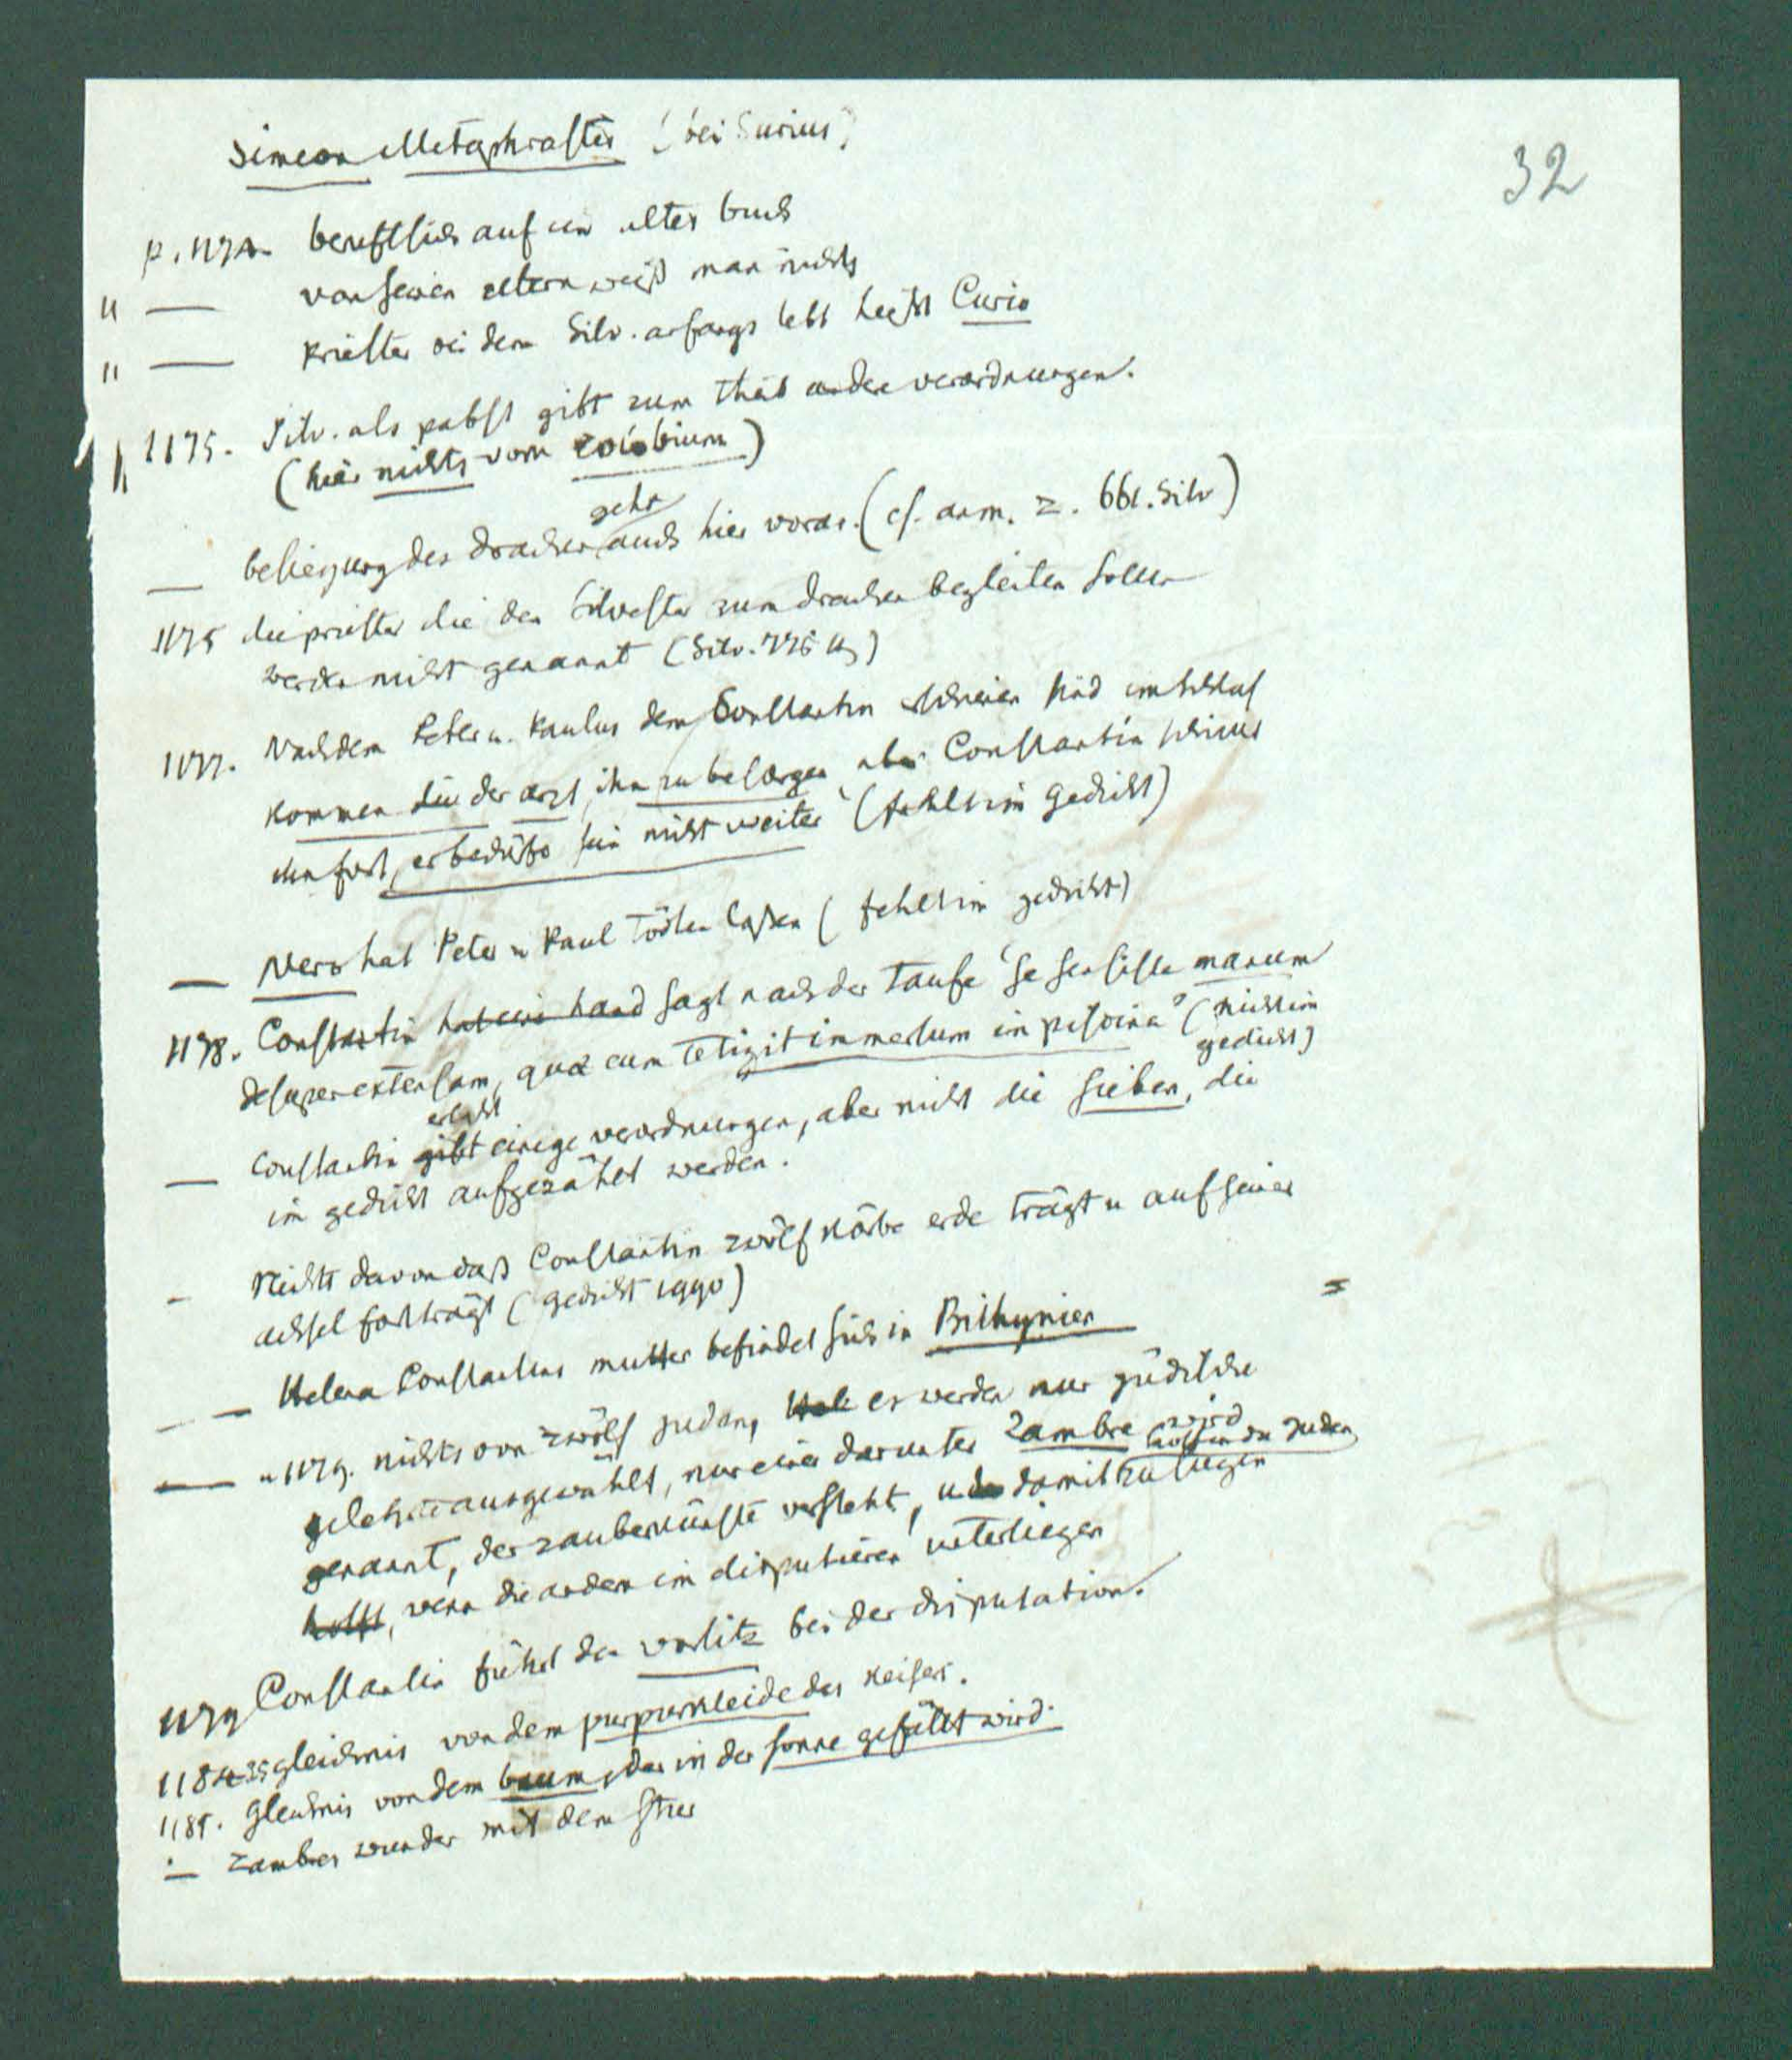 32
Simeon Metaphrastes (bei Surius)
p. 1174. beruft sich auf ein altes buch
" — von seinen eltern weiß man nichts
" — priester bei dem Silv. anfangs lebt heißt Curio
1175. Silv. als pabst gibt zum theil andere verordnungen.
(hier nichts vom colobium)
geht
— besiegung des drachen auch hier voran. (cf. anm. z. 661. Silv)
1175 die priester die den Silvester zum drachen begleiten sollen
werden nicht genannt (Silv. 776 ff)
1177. Nachdem Peter u. Paulus dem Constantin erschienen sind im schlaf
kommen die der arzt, ihn zu besorgen, aber Constantin schickt
ihn fort, er bedürfe sein nicht weiter (fehlt im gedicht)
— Nero hat Peter u Paul tödten laßen (fehlt im gedicht)
1178. Constantin hat eine hand sagt nach der taufe 'se sensisse manum
desuper extensam, quae eum tetigit immersum in piscina' (nicht im
gedicht)
erläßt
— Constantin gibt einige verordnungen, aber nicht die sieben, die
im gedicht aufgezählt werden.
– Nichts davon daß Constantin zwölf körbe erde trägt u auf seiner
achsel fortträgt (gedicht 1990)
— — Helena Constantins mutter befindet sich in Bithynien =
— " 1179. nichts von zwölf juden, es werden nur jüdische
gelehrte ausgewählt, nur einer darunter Zambre wird
genannt, der zauberkünste versteht, u damit den juden
zu siegen
hilft, wenn die andern im disputieren unterliegen
1179 Constantin führt den vorsitz bei der disputation.
1184.85 gleichnis von dem purpurkleide des keisers.
1185. Gleichnis von dem baum, der in der sonne gefällt wird.
— Zambres wunder mit dem stier